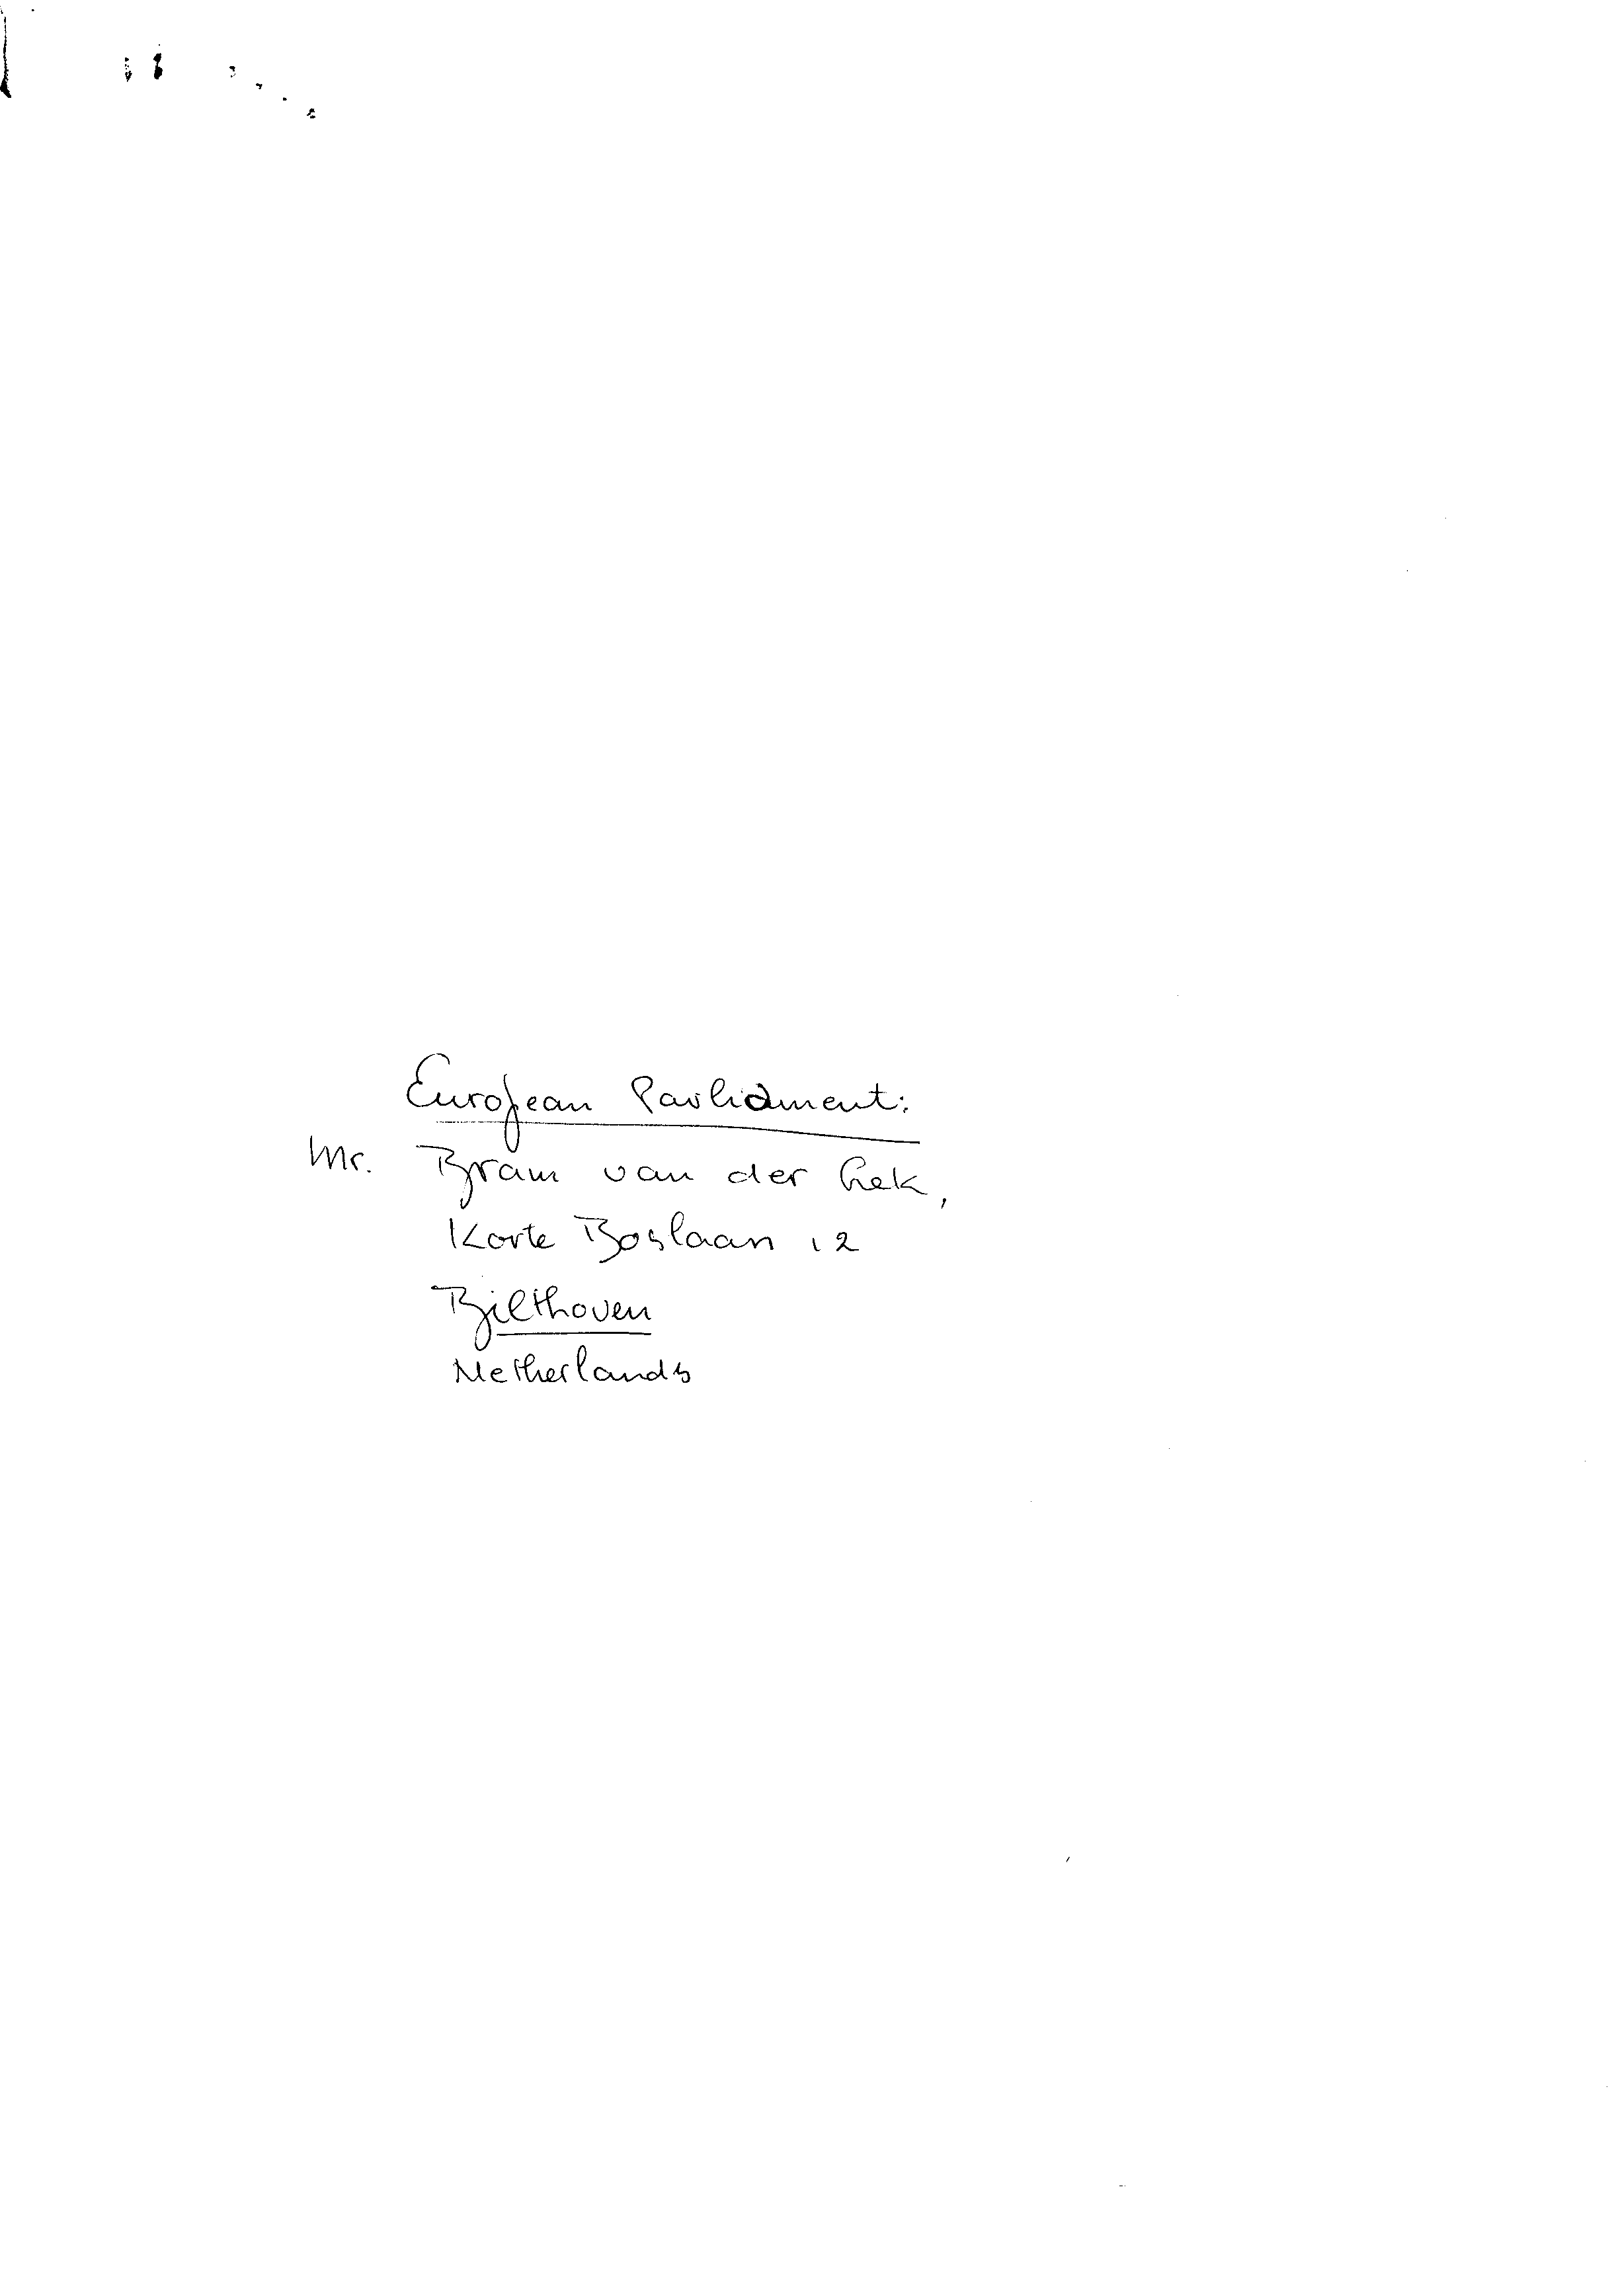 European Parliament:
Mr. Bram van der Lek,
Korte Boslaan 12
Bilthoven
Netherlands